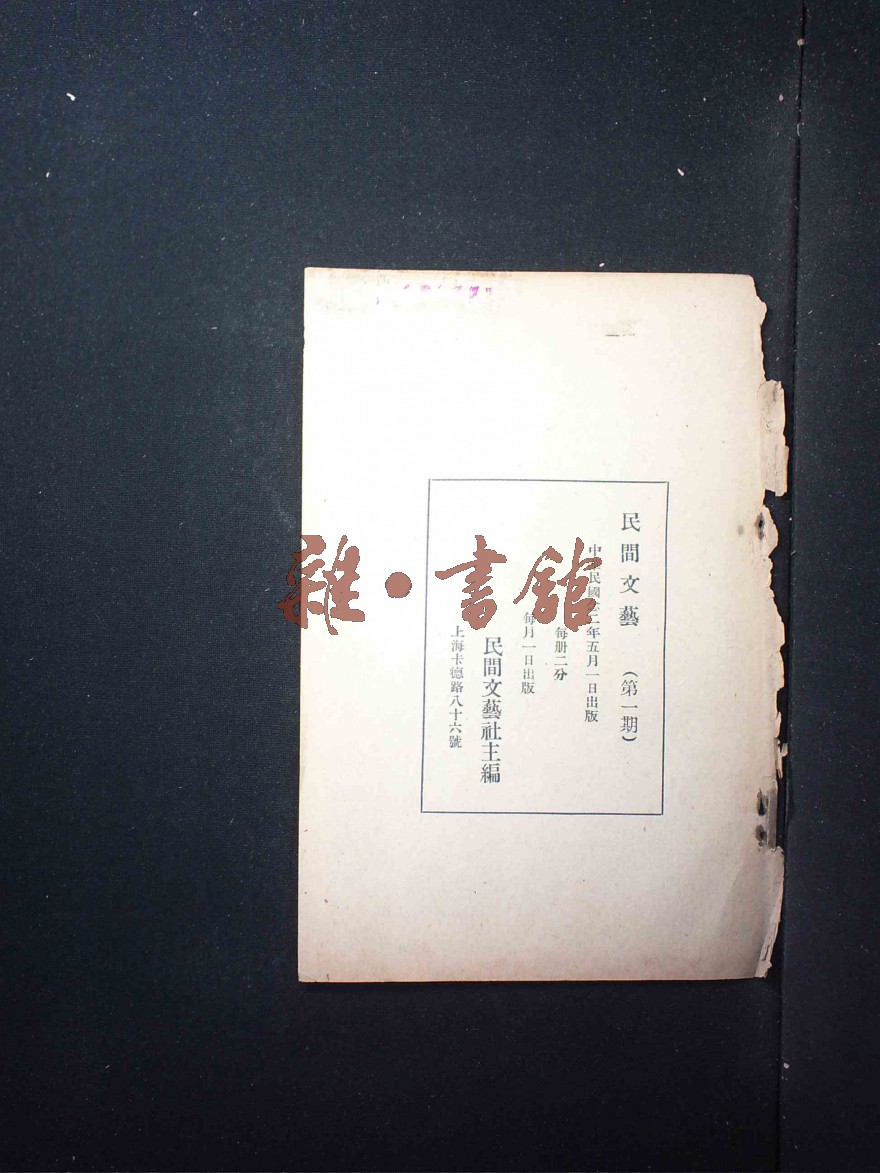 民間文藝　（第一期）
中　民國　二年五月一日出版
每册二分
每月一日出版
民間文藝社主編
上海卡德路八十六號
雜·書館